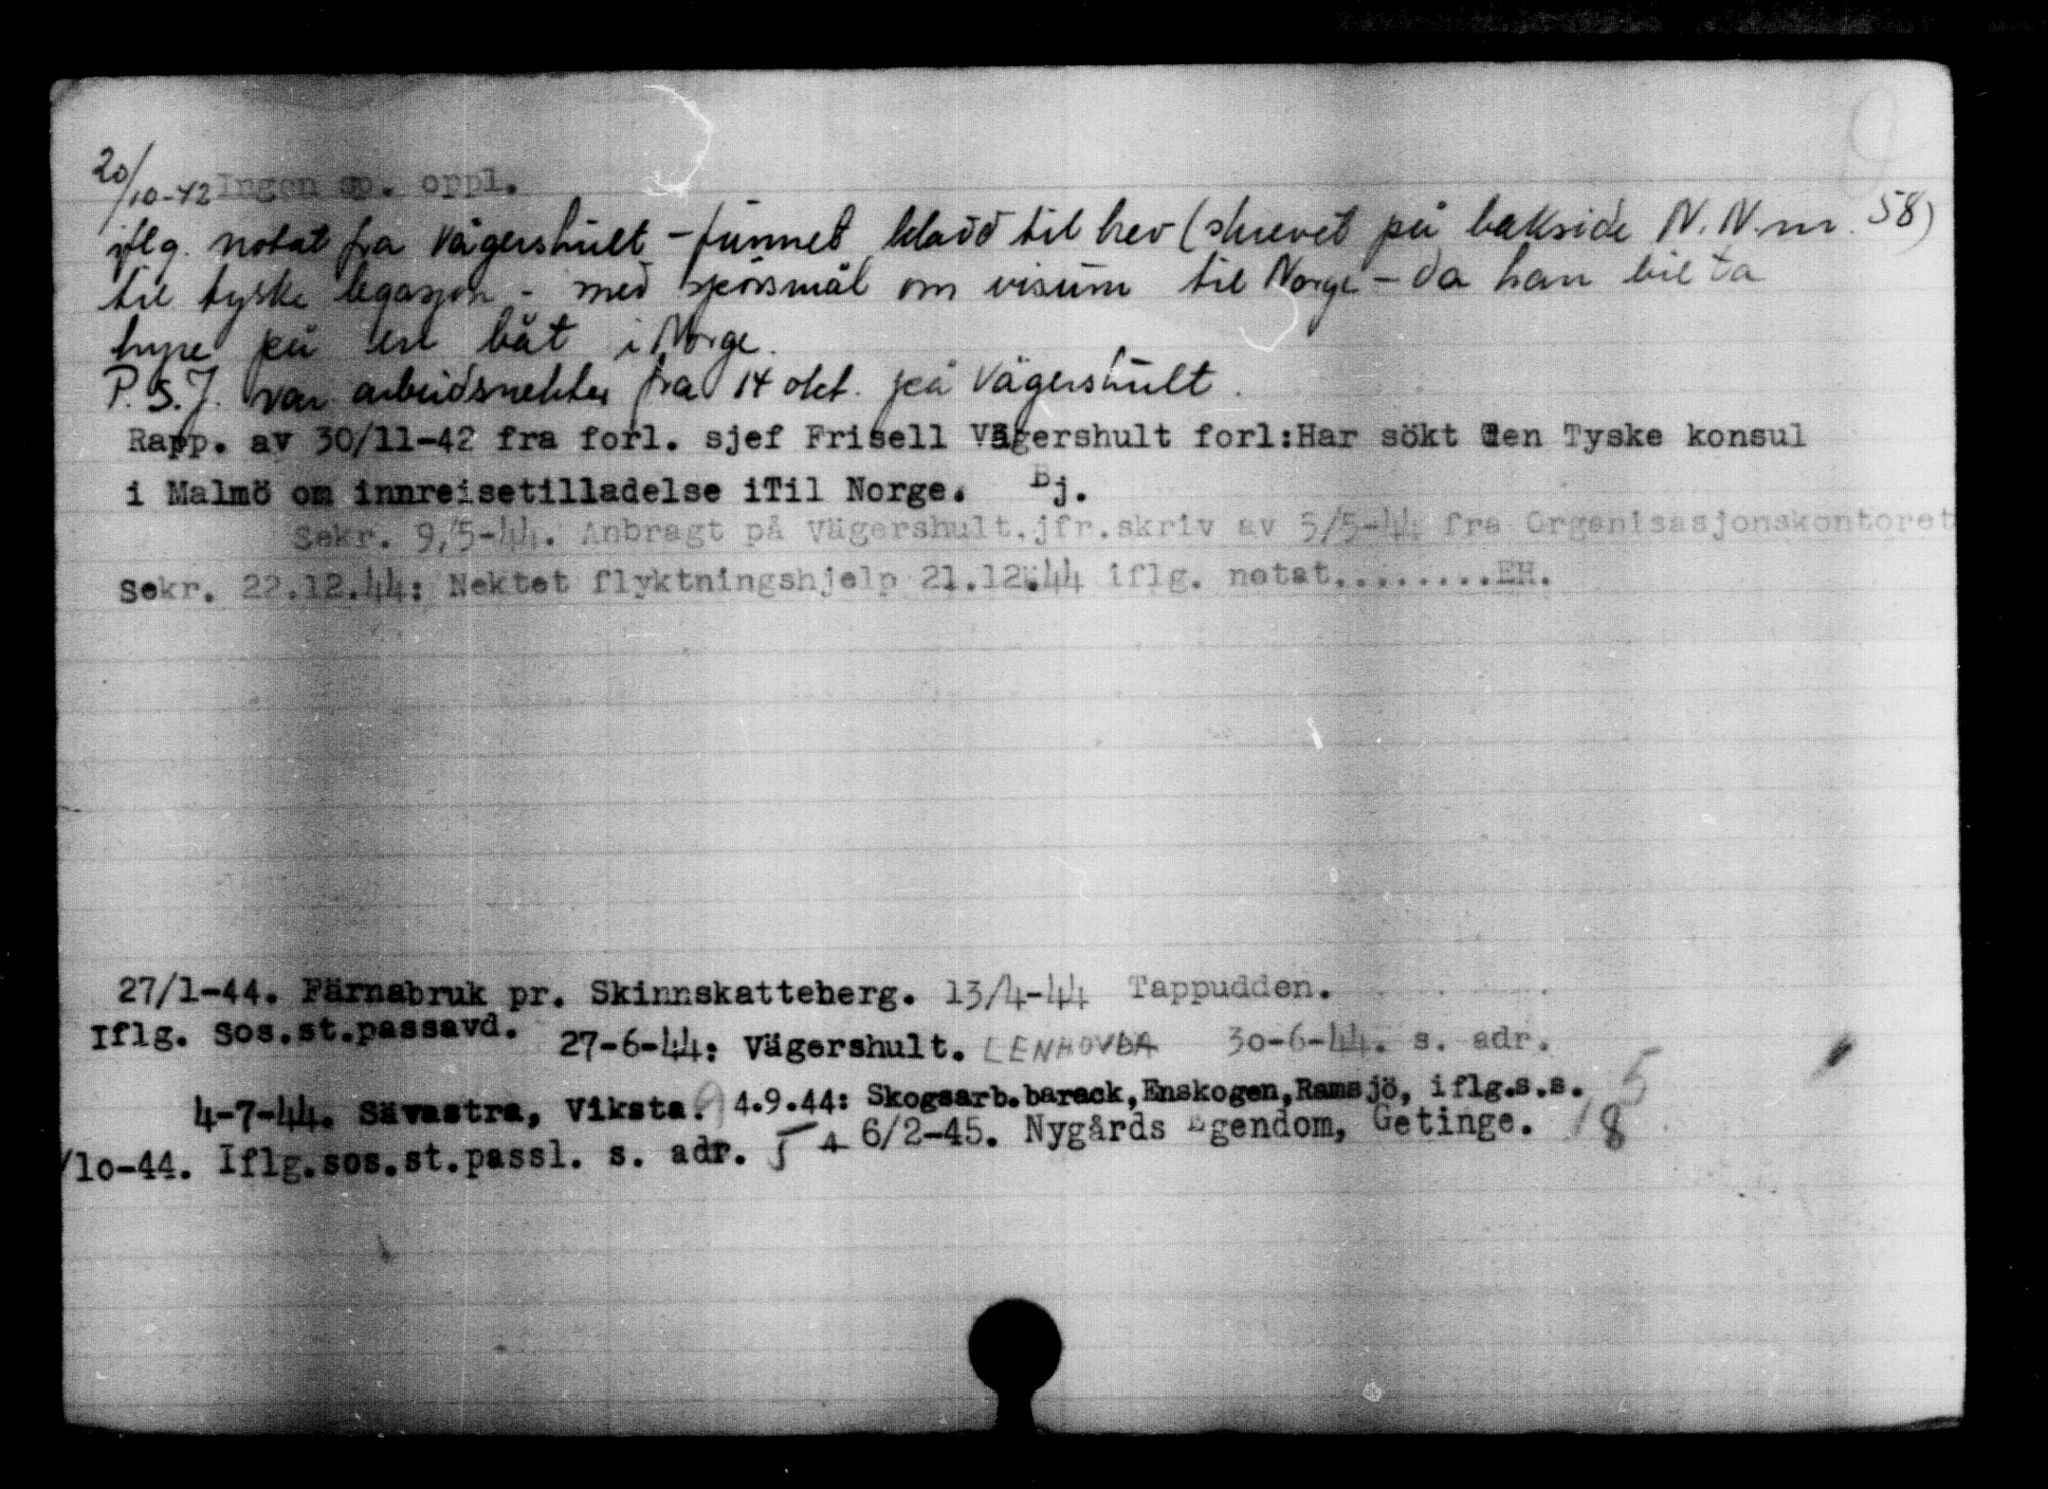 20/10-42 Ingen sp. oppl.
iflg. notat fra Vägershult - funnet kladd til brev (skrevet på bakside N.N. nr. 58)
til tyske legasjon - med spörsmål om visum til Norge - da han vil ta
hyre på en båt i Norge.
P.S.J. var arbeidsnekter fra 14 okt. på Vägershult.
Rapp. av 30/11-42 fra forl. sjef Frisell Vägershult forl:Har sökt den Tyske konsul
i Malmö om innreisetilladelse iTil Norge. Bj.
Sekr. 9/5-44. Anbragt på Vägershult.jfr.skriv av 5/5-44 fra Organisasjonskontoret
Sekr. 22.12.44: Nektet flyktningshjelp 21.12.44 iflg. notat........EH.
27/1-44. Färnabruk pr. Skinnskatteberg. 13/4-44 Tappudden.
Iflg. Sos.st.passavd. 27-6-44: Vägershult. LENHOVDA 30-6-44. s. adr.
4-7-44. Sävastra, Viksta. 4.9.44: Skogsarb.barack,Enskogen,Ramsjö, iflg.s.s. 5
/10-44. Iflg.sos.st.passl. s. adr. 5 4 6/2-45. Nygårds Egendom, Getinge. 18